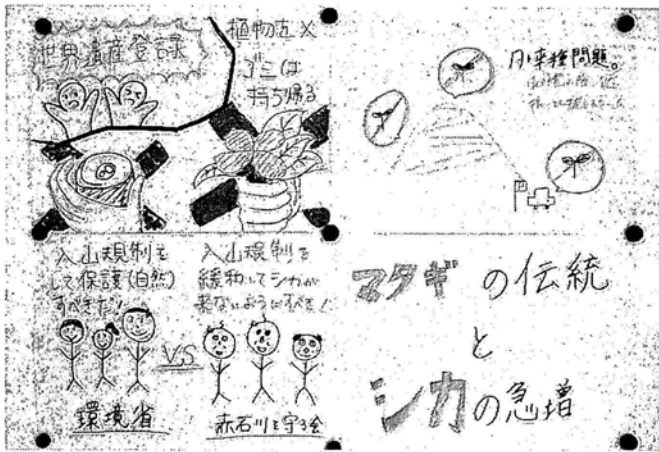 世界遺産登録
植物古 X
ゴミは
持ち帰る
外来種問題。
入山規制を
して保護(自然)
すべきだ!
VS
入山規制を
緩和してシカが
来ないようにすべき!
環境省
赤石川を守る会
マタギの伝統
と
シカの急増